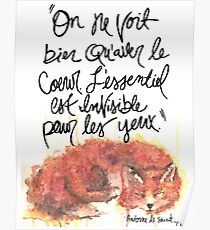 "On ne voit
bien qu'avec le
Coeur. L'essentiel
est invisible
pour les yeux."
Antoine de Saint